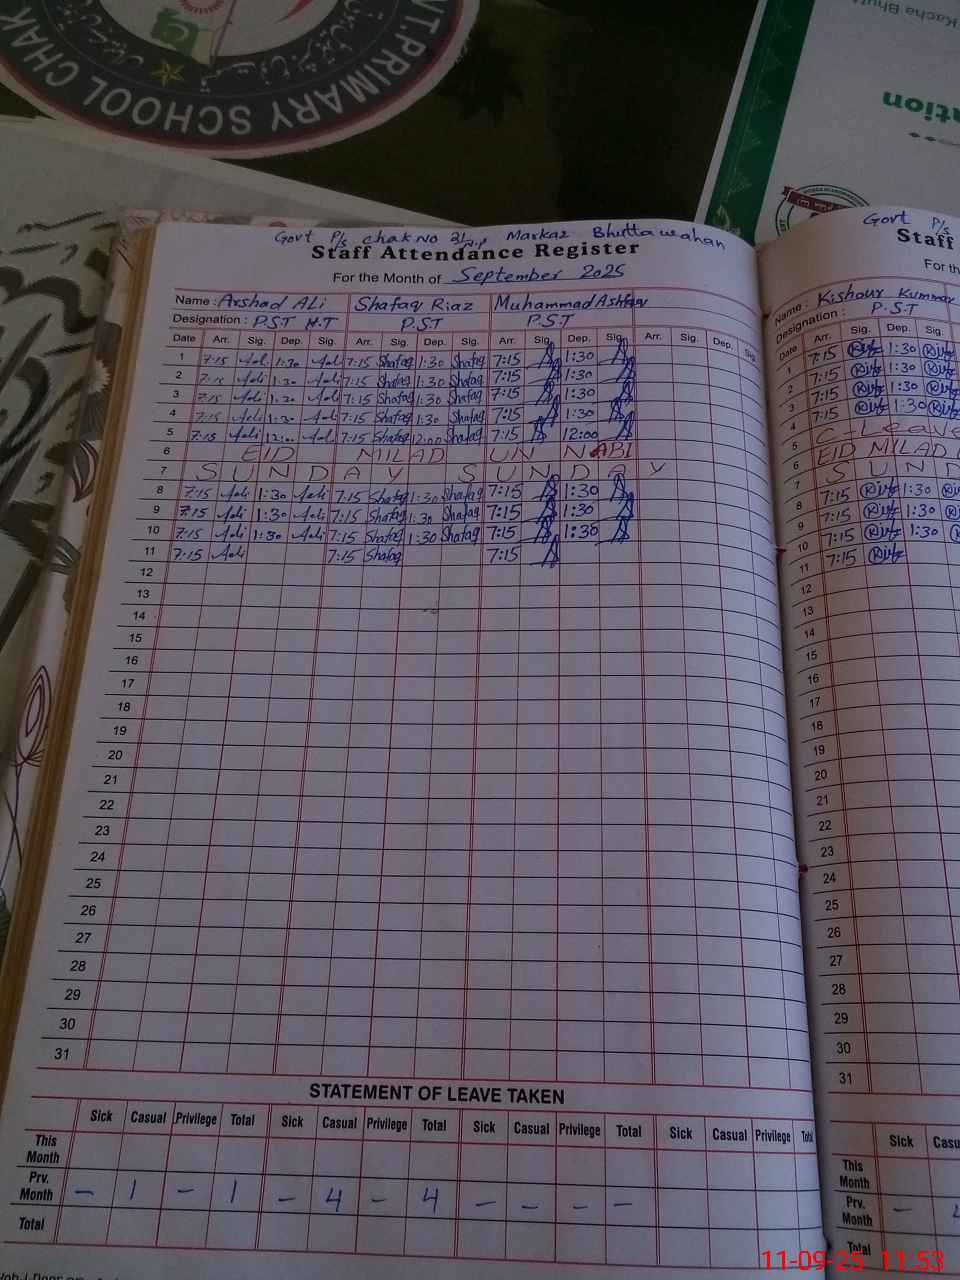 NT.PRIMARY SCHOOL CHAK
Kacha Bhutt
ation
Govt P/s chak no 31/N.P Markaz Bhuttawahan
Staff Attendance Register
For the Month of September 2025
Name : Arshad ALi Shafaq Riaz Muhammad Ashfaq
Designation : P.S.T H.T P.S.T P.S.T
Date Arr. Sig. Dep. Sig. Arr. Sig. Dep. Sig. Arr. Sig. Dep. Sig. Arr. Sig. Dep. Sig.
1 7:15 Aeli 1:30 Aeli 7:15 Shafaq 1:30 Shafaq 7:15 1:30
2 7:15 Aeli 1:30 Aeli 7:15 Shafaq 1:30 Shafaq 7:15 1:30
3 7:15 Aeli 1:30 Aeli 7:15 Shafaq 1:30 Shafaq 7:15 1:30
4 7:15 Aeli 1:30 Aeli 7:15 Shafaq 1:30 Shafaq 7:15 1:30
5 7:15 Aeli 12:00 Aeli 7:15 Shafaq 12:00 Shafaq 7:15 12:00
6 EID MILAD UN NABI
7 S U N D A Y S U N D A Y
8 7:15 Aeli 1:30 Aeli 7:15 Shafaq 1:30 Shafaq 7:15 1:30
9 7:15 Aeli 1:30 Aeli 7:15 Shafaq 1:30 Shafaq 7:15 1:30
10 7:15 Aeli 1:30 Aeli 7:15 Shafaq 1:30 Shafaq 7:15 1:30
11 7:15 Aeli 7:15 Shafaq 7:15
12
13
14
15
16
17
18
19
20
21
22
23
24
25
26
27
28
29
30
31
STATEMENT OF LEAVE TAKEN
Sick Casual Privilege Total Sick Casual Privilege Total Sick Casual Privilege Total Sick Casual Privilege Total
This Month
Prv. Month - 1 - 1 - 4 - 4 - - - -
Total
Govt P/s
Staff
For th
Name : Kishour Kummar
Designation : P.S.T
Date Arr. Sig. Dep. Sig.
1 7:15 1:30
2 7:15 1:30
3 7:15 1:30
4 7:15 1:30
5 C-Leave
6 EID MILAD
7 S U N D
8 7:15 1:30
9 7:15 1:30
10 7:15 1:30
11 7:15
12
13
14
15
16
17
18
19
20
21
22
23
24
25
26
27
28
29
30
31
Sick Casu
This Month
Prv. Month -
Total
11-09-25 11:53